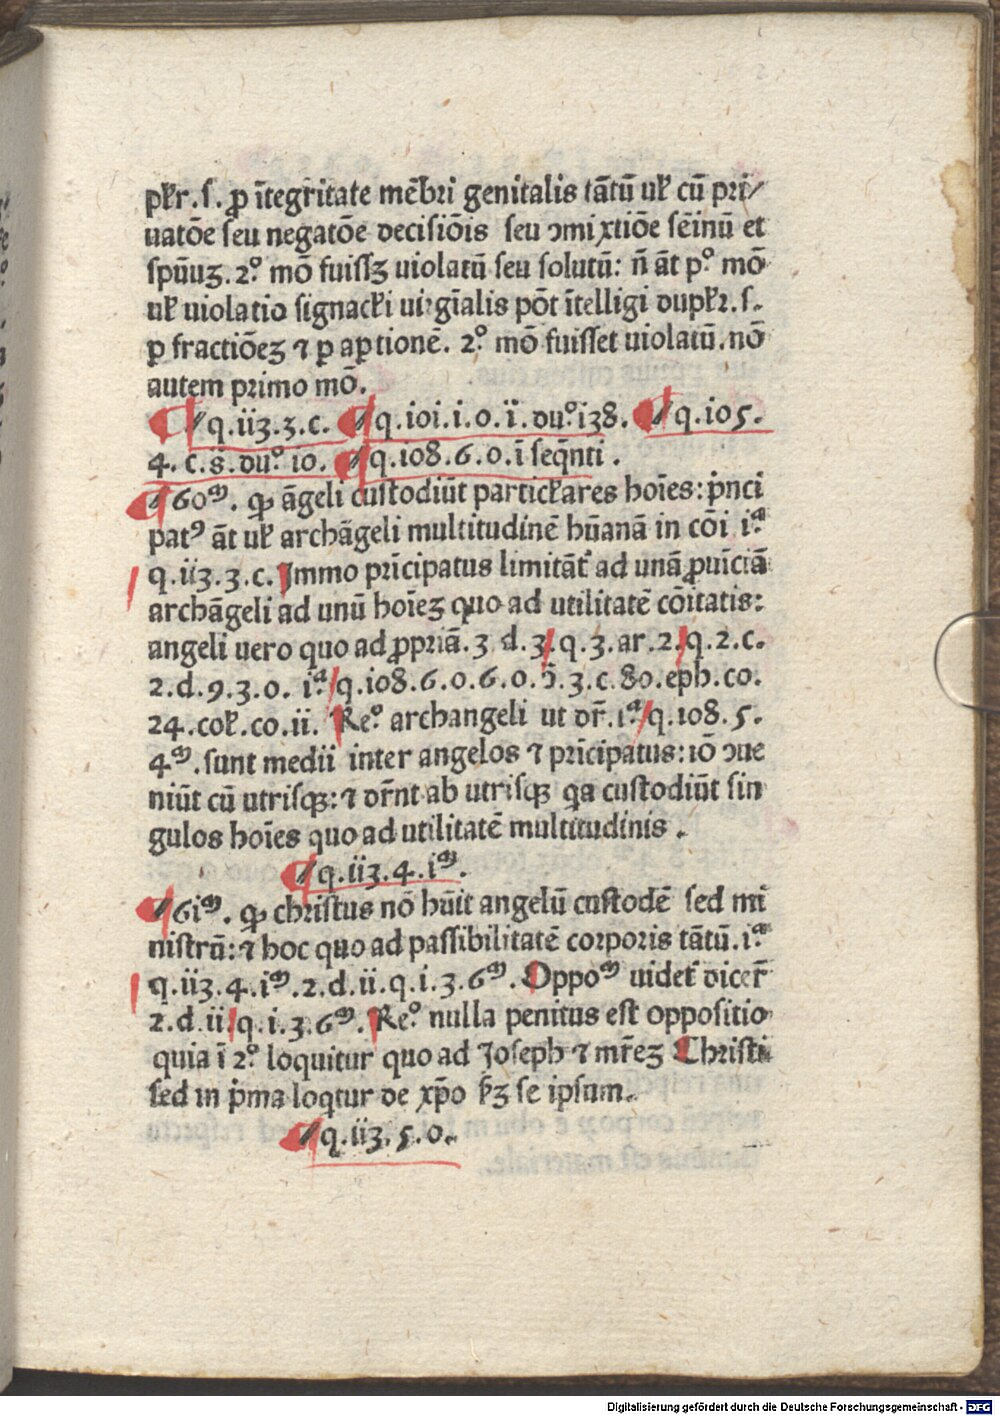 pľr.ſ. ꝓ ītegritate mēbri genitalis tātū uľ cū pri/
uatōe ſeu negatōe deciſiōis ſeu ↄmixtiōe ſēinū et
ſpūuʒ. 2.° mō fuiſſʒ uiolatū ſeu ſolutū: ñ āt p.° mō
uľ uiolatio ſignacľi uirgīalis pōt ītelligi dupľr. ſ.
p fractiōeʒ ⁊ p aptionē. 2.° mō fuiſſet uiolatū. nō
autem primo mō.
¶ q. ii3. 3. c. ¶ q. i0i. i. o. ī. du.° i38. ¶ q. i05.
4. c. s. du.° i0. ¶ q. i08. 6. o. ī ſeq̄nti.
¶ 60ᵐ. ꝙ āgeli cuſtodiūt particľares hoīes: p̄nci
patꝰ āt uľ archāgeli multitudinē hūanā in cōi i.ᵃ
q. ii3. 3. c. Immo prīcipatus limitāt̄ ad unā ꝓuīciā
archāgeli ad unū hoīeʒ quo ad utilitatē cōitatis:
angeli uero quo ad ꝓpriā. 3 d. 3. q. 3. ar. 2. q. 2. c.
2. d. 9. 3. o. i.ᵃ q. i08. 6. o. 6. o. ↄ̄. 3. c. 80. eph. co.
24. coľ. co. ii. Re.° archangeli ut dr̄. i.ᵃ q. i08. 5.
4ᵐ. ſunt medii inter angelos ⁊ prīcipatus: iō ↄue
niūt cū utriſqʒ: ⁊ dr̄nt ab utriſqʒ qa cuſtodiūt ſin
gulos hoīes quo ad utilitatē multitudinis.
¶ q. ii3. 4. iᵐ.
¶ 6iᵐ. ꝙ chriſtus nō hūit angelū cuſtodē ſed mi
niſtrū: ⁊ hoc quo ad paſſibilitatē corporis tātū. i.ᵃ
q. ii3. 4. iᵐ. 2. d. ii. q. i. 3. 6ᵐ. Oppoᵐ uidet̄ dicer̄
2. d. ii. q. i. 3. 6ᵐ. Re.° nulla penitus eſt oppoſitio
quia ī 2.° loquitur quo ad Joſeph ⁊ mr̄eʒ Chriſti
ſed in p̄ma loqtur de xp̄o ſʒ ſe ipſum.
¶ q. ii3. 5. o.
Digitalisierung gefördert durch die Deutsche Forschungsgemeinschaft - DFG